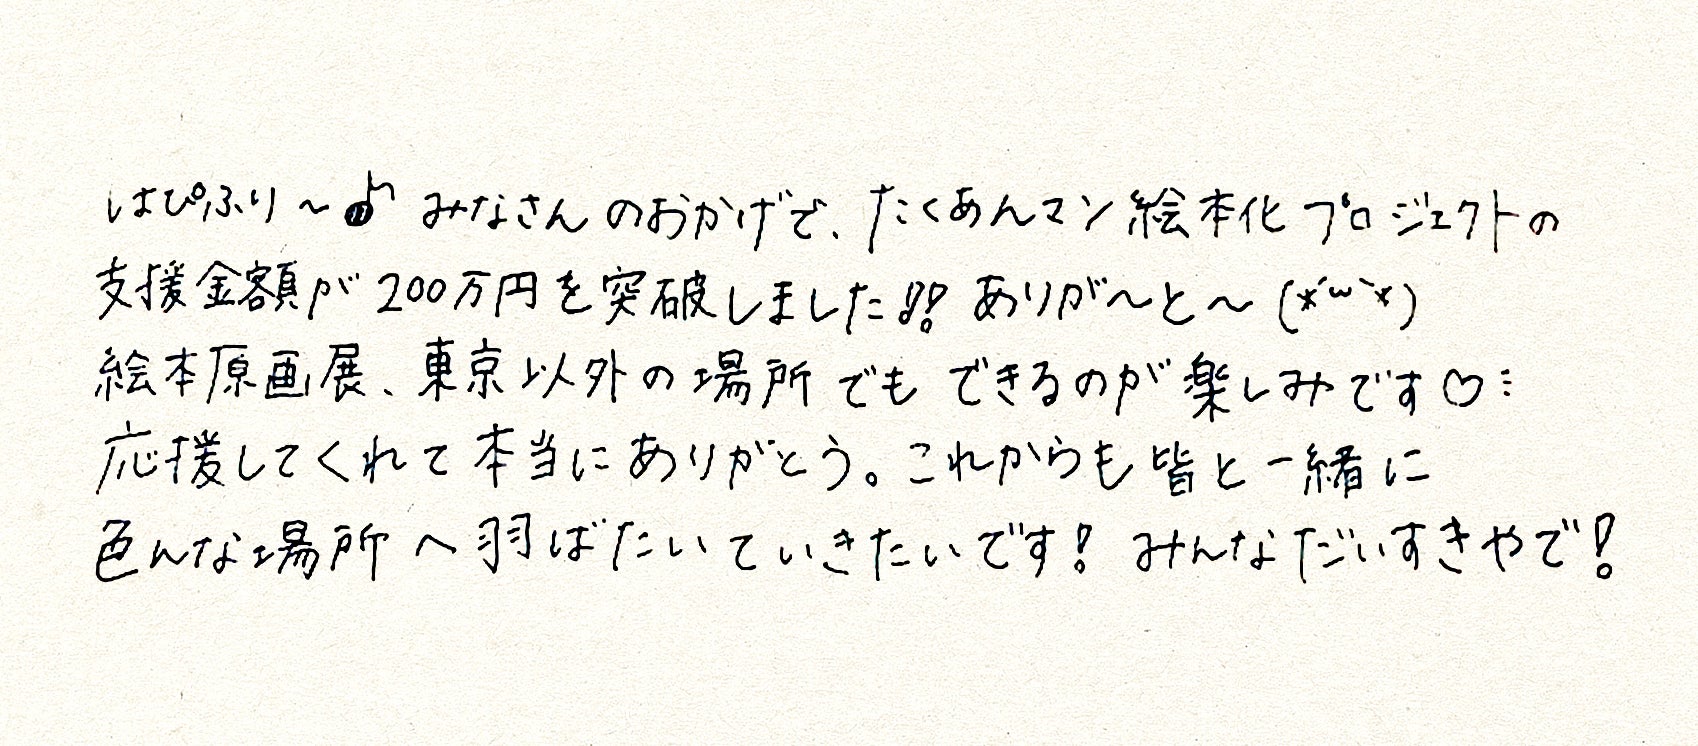 はぴふり〜♪ みなさんのおかげで、たくあんマン絵本化プロジェクトの
支援金額が200万円を突破しました!! ありが〜と〜(*´ω`*)
絵本原画展、東京以外の場所でもできるのが楽しみです♡⋮
応援してくれて本当にありがとう。これからも皆と一緒に
色んな場所へ羽ばたいていきたいです! みんなだいすきやで!